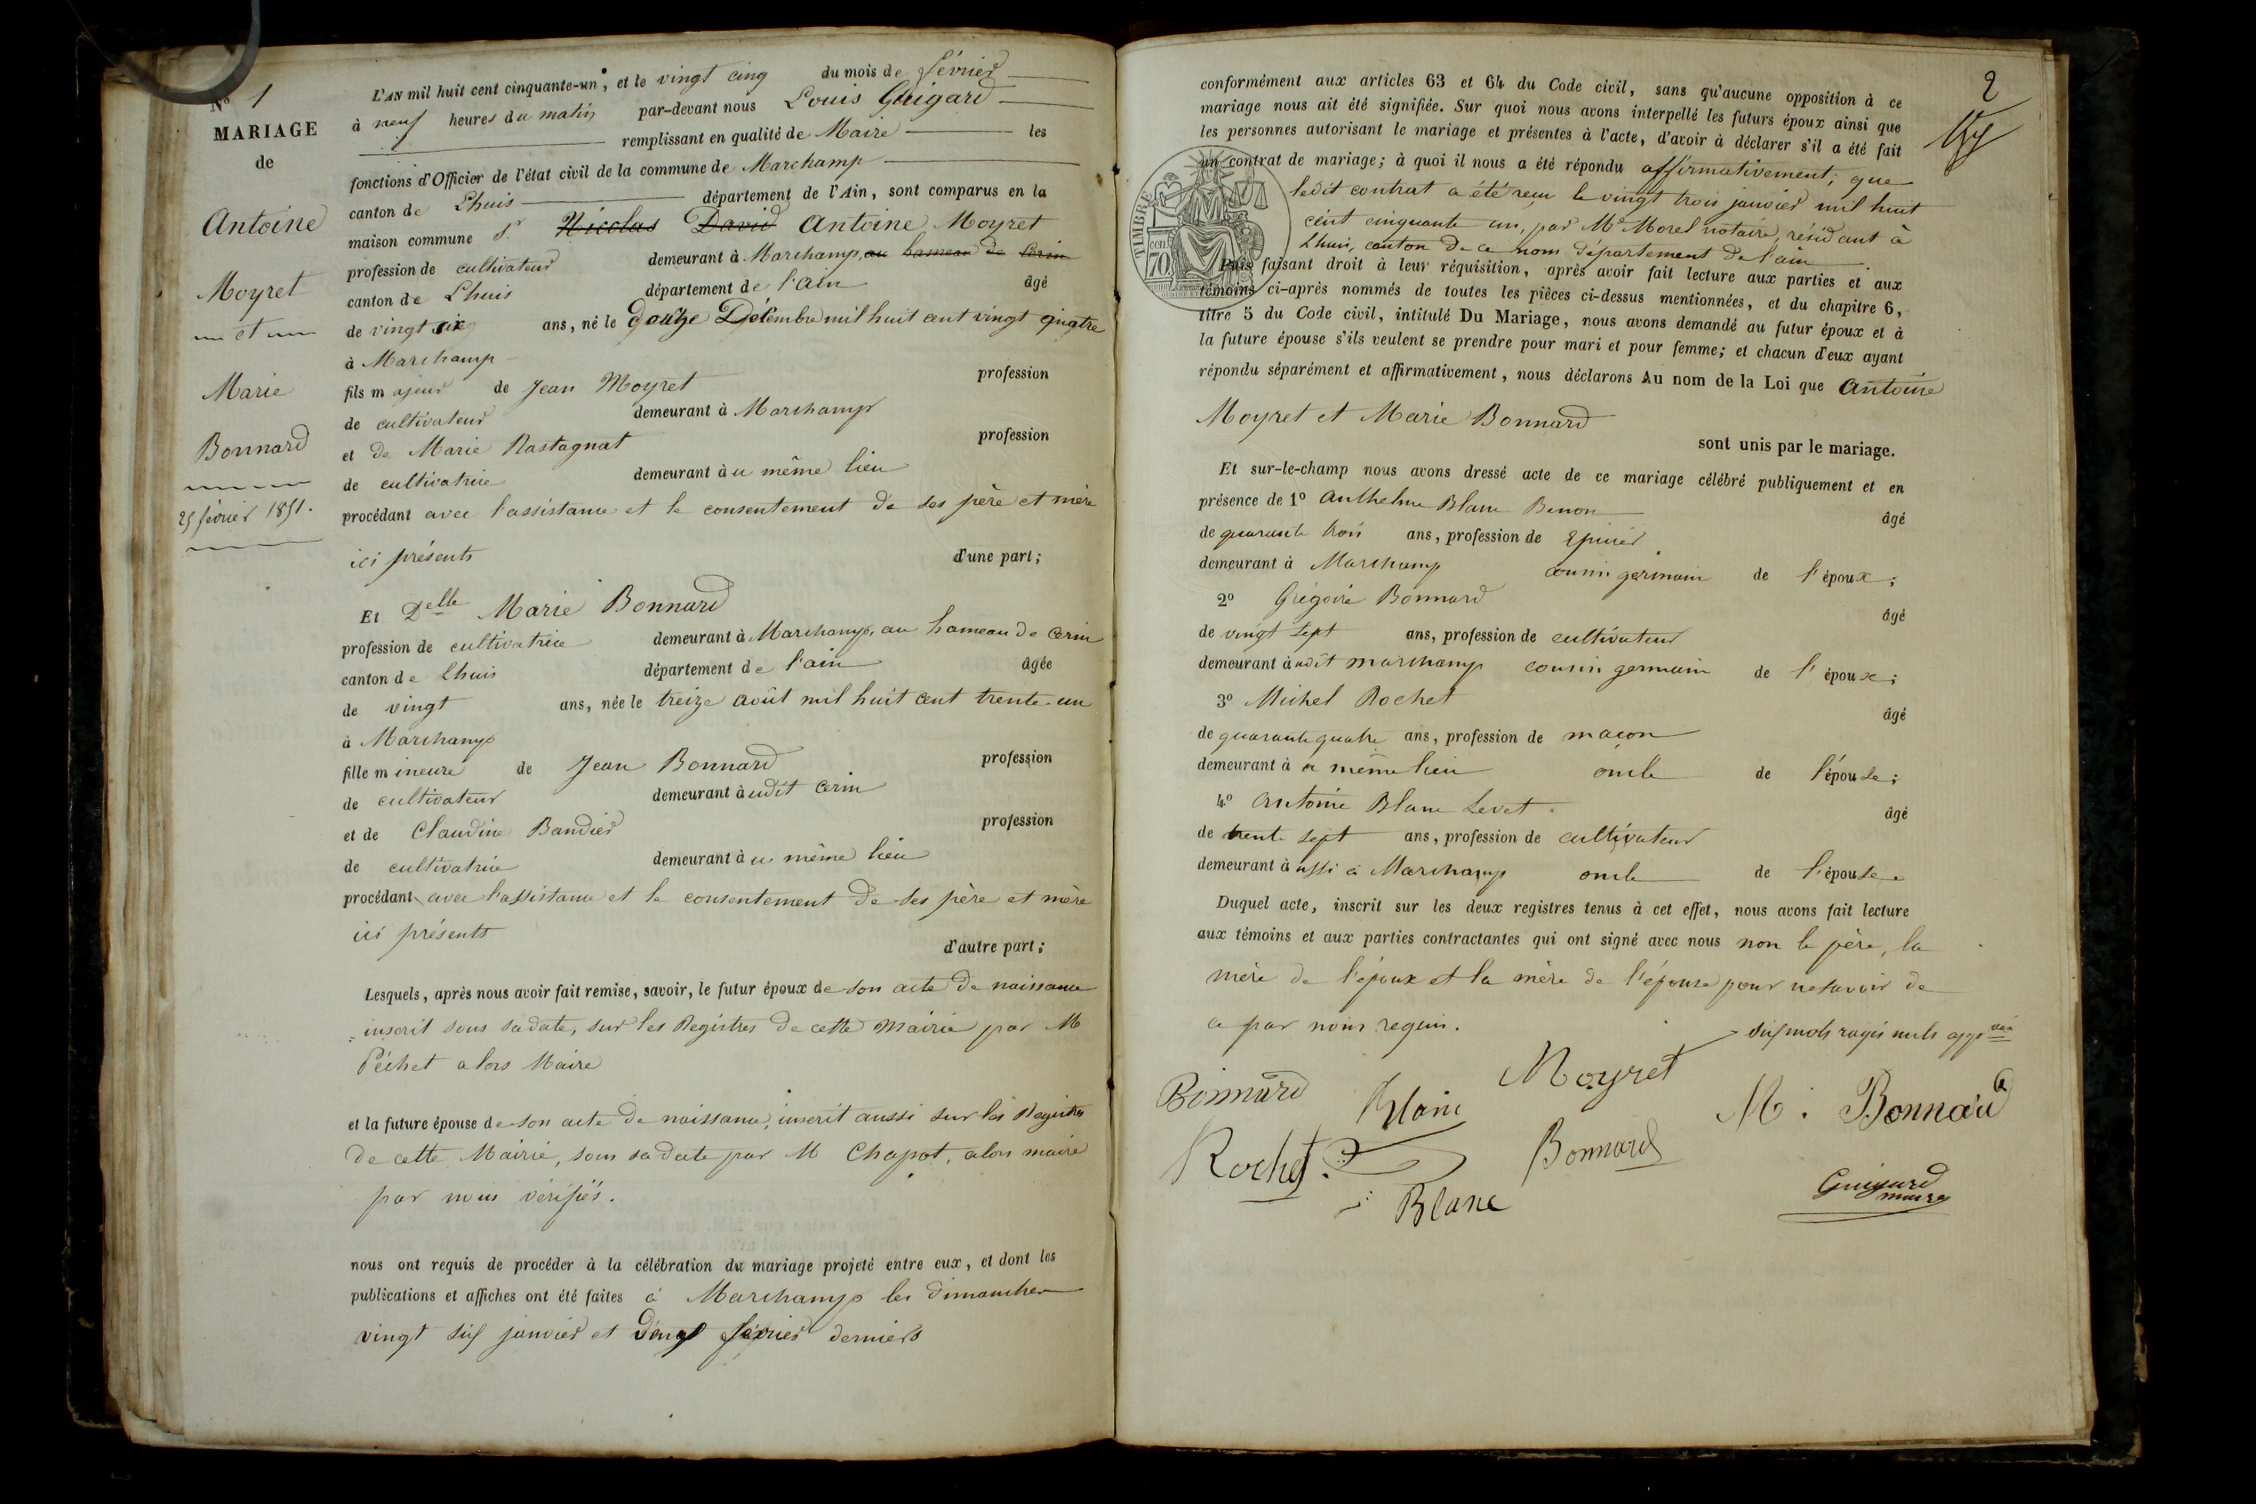 N° 1
MARIAGE
de
Antoine
Moyret
et
Marie
Bonnard
25 février 1851.
L'AN mil huit cent cinquante-un, et le vingt cinq du mois de février
à neuf heures du matin par-devant nous Louis Guigard
remplissant en qualité de Maire les
fonctions d'Officier de l'état civil de la commune de Marchamp
canton de Lhuis département de l'Ain, sont comparus en la
maison commune Sr Nicolas David Antoine Moyret
profession de cultivateur demeurant à Marchamp, au hameau de Cerin
canton de Lhuis département de l'ain âgé
de vingt six ans, né le douze Décembre mil huit cent vingt quatre
à Marchamp
fils majeur de Jean Moyret profession
de cultivateur demeurant à Marchamp
et de Marie Rastagnat profession
de cultivatrice demeurant au même lieu
procédant avec l'assistance et le consentement de ses père et mère
ici présents d'une part;
Et Delle Marie Bonnard
profession de cultivatrice demeurant à Marchamp, au hameau de Cerin
canton de Lhuis département de l'ain âgée
de vingt ans, née le treize août mil huit cent trente-un
à Marchamp
fille mineure de Jean Bonnard profession
de cultivateur demeurant audit Cerin
et de Claudine Bandier profession
de cultivatrice demeurant au même lieu
procédant avec l'assistance et le consentement de ses père et mère
ici présents
d'autre part;
Lesquels, après nous avoir fait remise, savoir, le futur époux de son acte de naissance
inscrit sous sa date, sur les Registres de cette Mairie par M
Péchet alors Maire
et la future épouse de son acte de naissance, inscrit aussi sur les Registres
de cette Mairie, sous sa date par M Chapot, alors maire
par nous vérifiés.
nous ont requis de procéder à la célébration du mariage projeté entre eux, et dont les
publications et affiches ont été faites à Marchamp les dimanches
vingt six janvier et deux février derniers
2
conformément aux articles 63 et 64 du Code civil, sans qu'aucune opposition à ce
mariage nous ait été signifiée. Sur quoi nous avons interpellé les futurs époux ainsi que
les personnes autorisant le mariage et présentes à l'acte, d'avoir à déclarer s'il a été fait
un contrat de mariage; à quoi il nous a été répondu affirmativement; que
ledit contrat a été reçu le vingt trois janvier mil huit
cent cinquante un, par Me Morel notaire, résidant à
Lhuis, canton de ce nom département de l'ain
TIMBRE
70
Puis faisant droit à leur réquisition, après avoir fait lecture aux parties et aux
témoins ci-après nommés de toutes les pièces ci-dessus mentionnées, et du chapitre 6,
titre 5 du Code civil, intitulé Du Mariage, nous avons demandé au futur époux et à
la future épouse s'ils veulent se prendre pour mari et pour femme; et chacun d'eux ayant
répondu séparément et affirmativement, nous déclarons Au nom de la Loi que Antoine
Moyret et Marie Bonnard
sont unis par le mariage.
Et sur-le-champ nous avons dressé acte de ce mariage célébré publiquement et en
présence de 1° Anthelme Blanc Benon âgé
de quarante trois ans, profession de Epicier
demeurant à Marchamp cousin germain de l'époux;
2° Grégoire Bonnard âgé
de vingt sept ans, profession de cultivateur
demeurant audit Marchamp cousin germain de l'époux;
3° Michel Rochet âgé
de quarante quatre ans, profession de maçon
demeurant à même lieu oncle de l'épouse;
4° Antoine Blanc Levet âgé
de trente sept ans, profession de cultivateur
demeurant aussi à Marchamp oncle de l'épouse.
Duquel acte, inscrit sur les deux registres tenus à cet effet, nous avons fait lecture
aux témoins et aux parties contractantes qui ont signé avec nous non le père, la
mère de l'époux et la mère de l'épouse pour ne savoir de
ce par nous requis.
six mots rayés nuls
Bonnard Blanc Moyret M. Bonnard
Rochet Bonnard
Blanc Guigard
maire